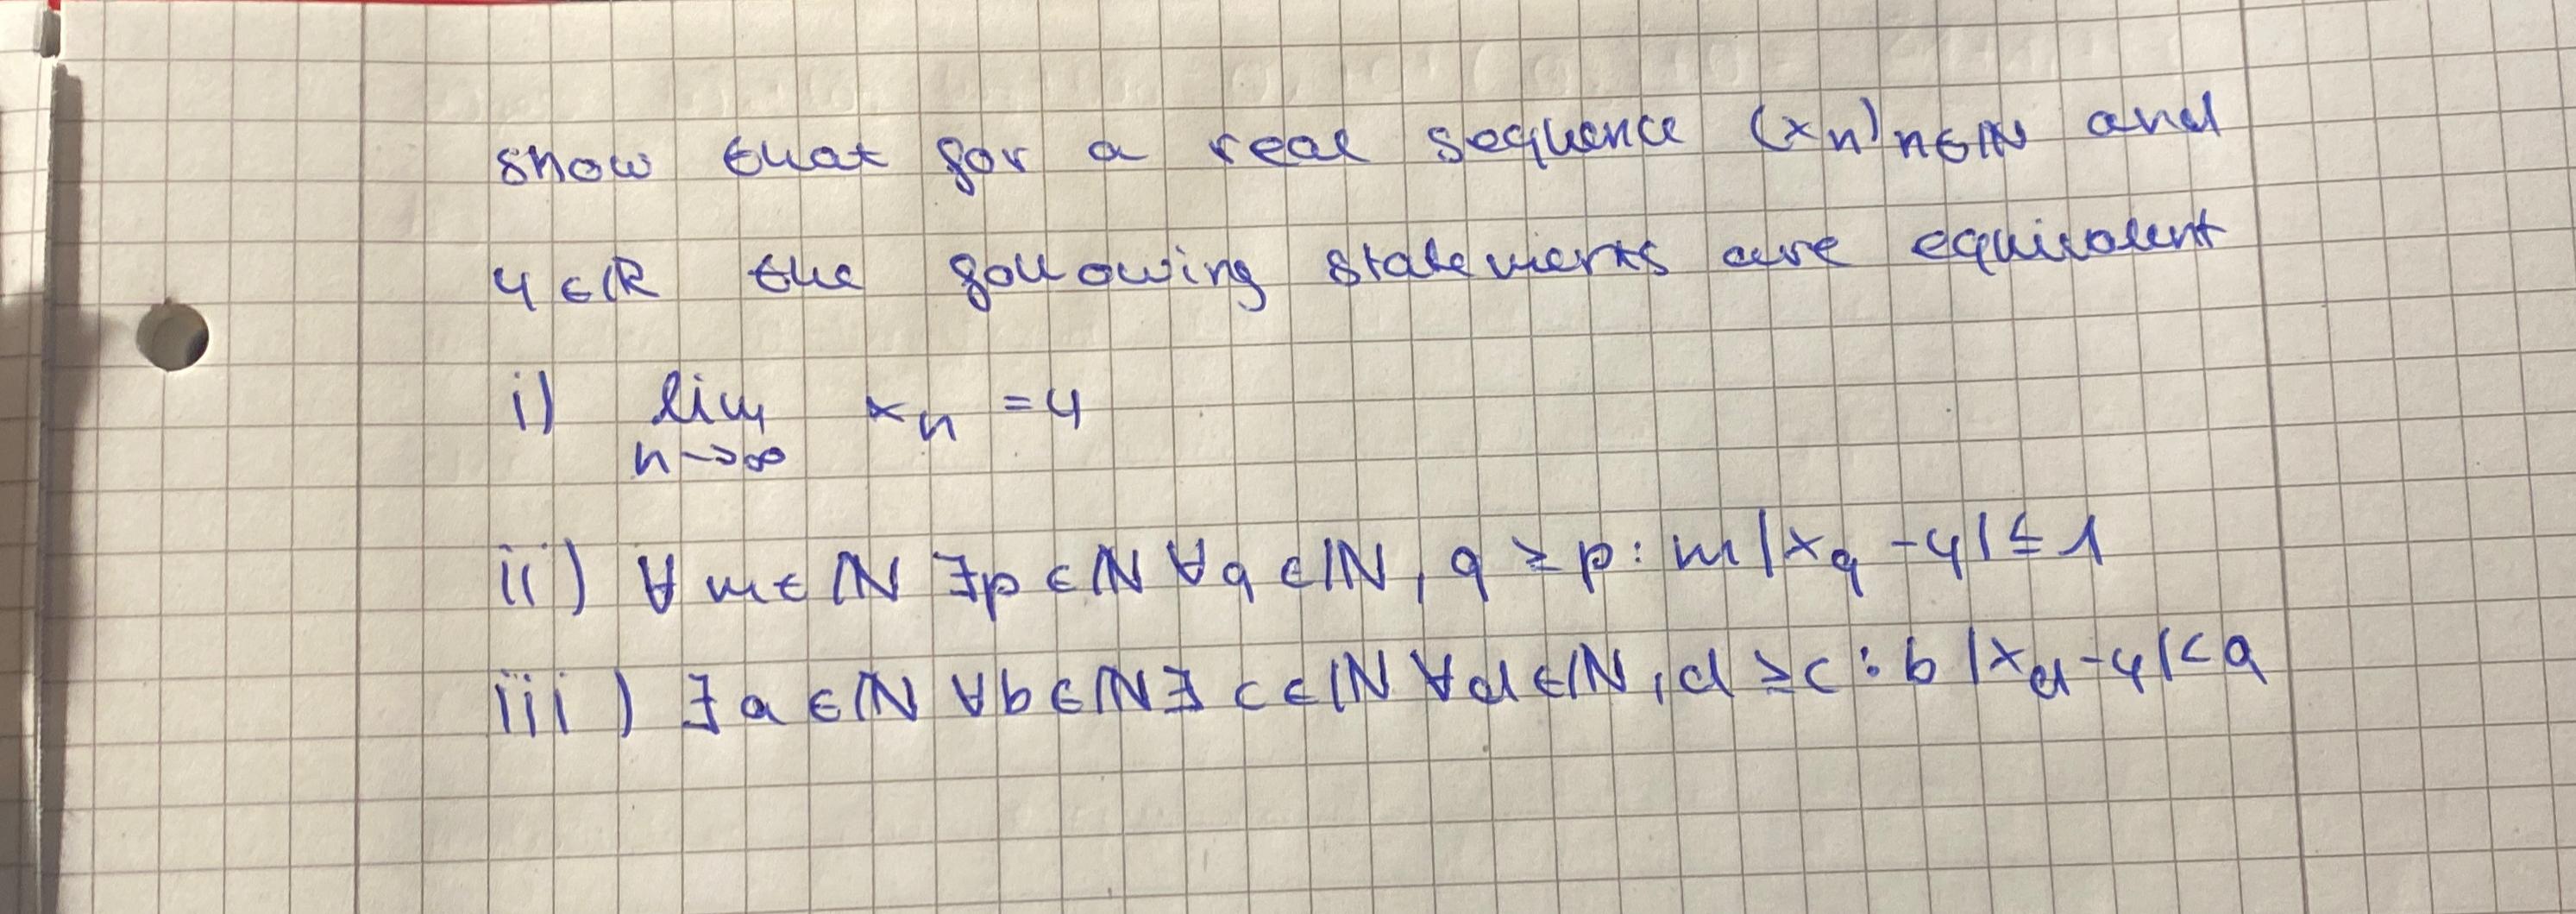 show that for a real sequence (xn)n∈ℕ and
y∈ℝ the following statements are equivalent
i) lim xn = y
n→∞
ii) ∀ m ∈ ℕ ∃p ∈ ℕ ∀q ∈ ℕ, q ≥ p: m|xq - y| ≤ 1
iii) ∃ a ∈ ℕ ∀b ∈ ℕ ∃ c ∈ ℕ ∀d ∈ ℕ, d ≥ c: b |xd - y| < a